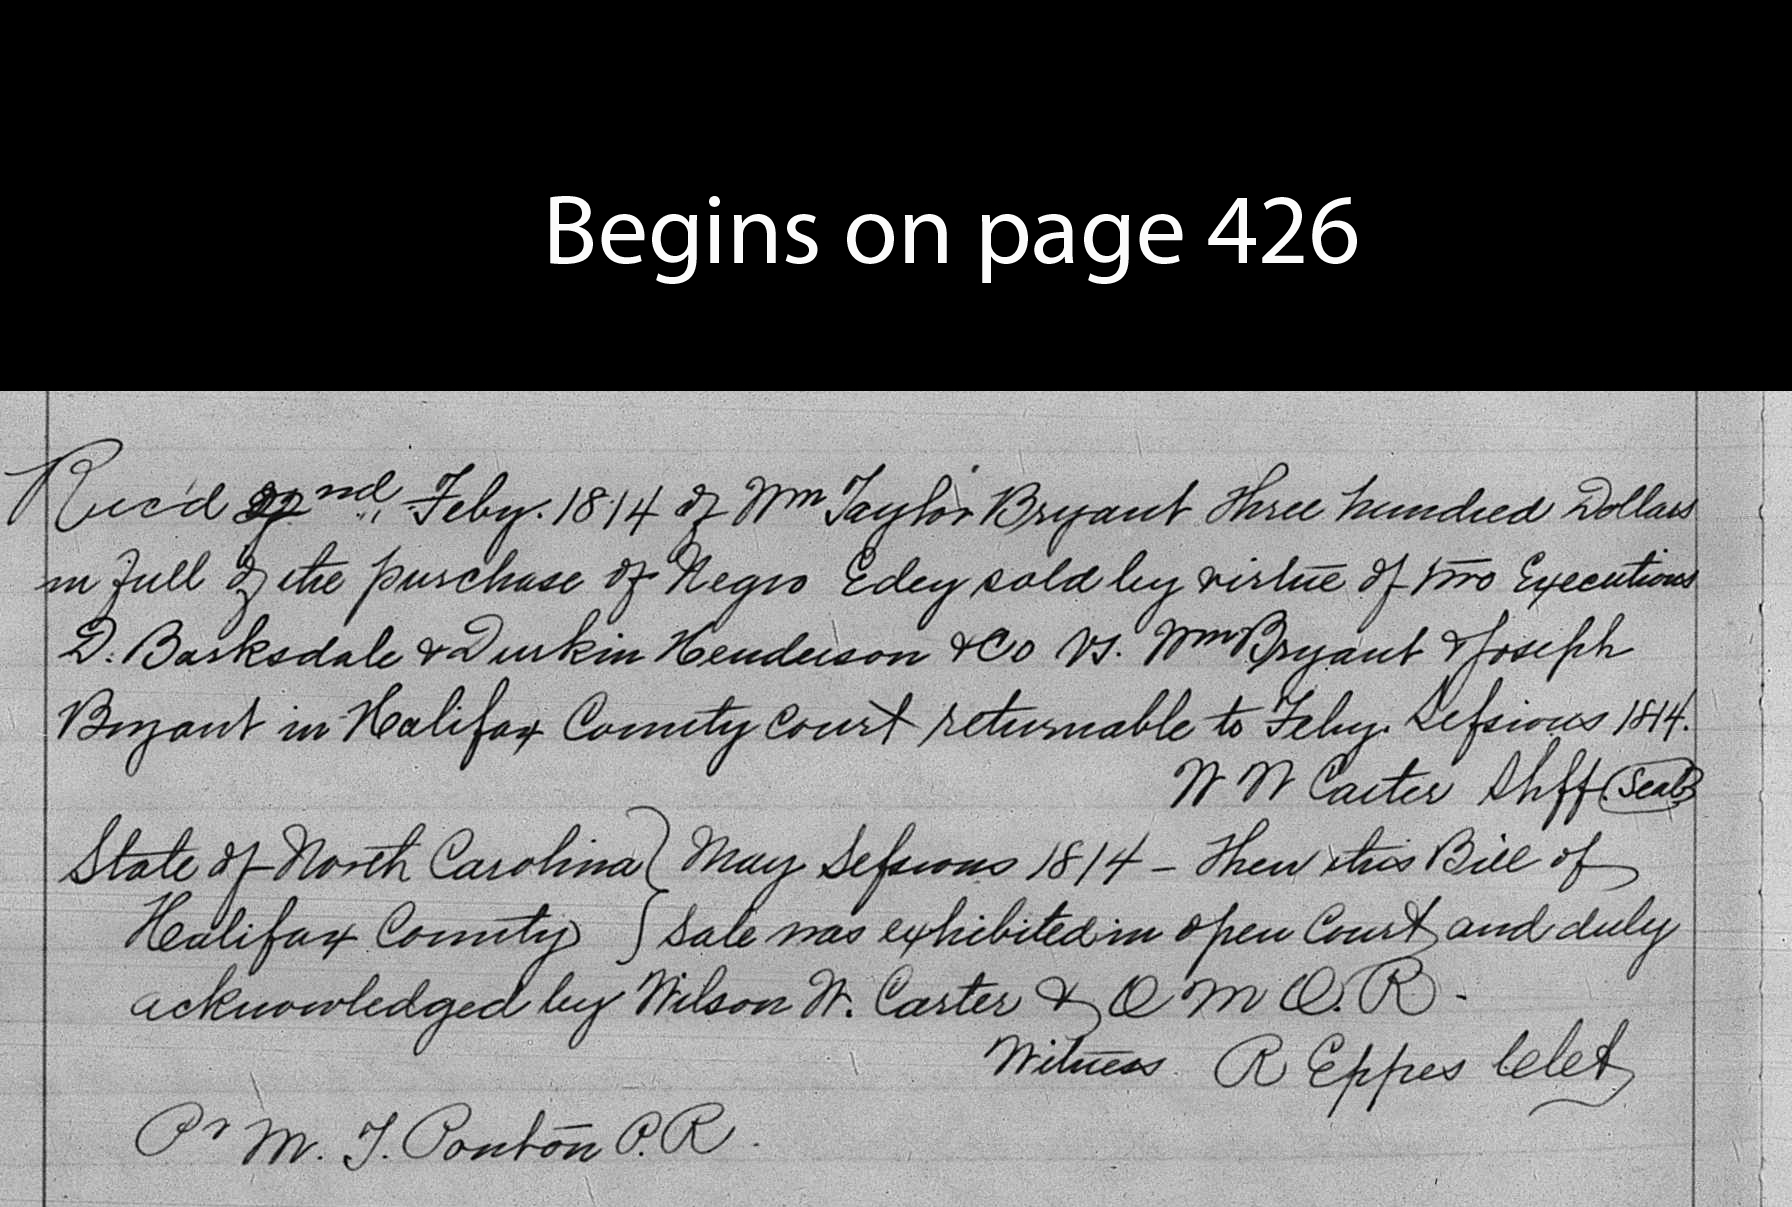 Begins on page 426
Rec'd 22nd Feby. 1814 of Wm Taylor Bryant three hundred Dollars
in full of the purchase of Negro Edey sold by virtue of two Executions
D. Barksdale & Durkin Henderson & Co vs. Wm Bryant & Joseph
Bryant in Halifax County Court returnable to Feby. Sessions 1814.
W W Carter Shff (Seal)
State of North Carolina } May Sessions 1814 – Then this Bill of
Halifax County } Sale was exhibited in open Court and duly
acknowledged by Wilson W. Carter & O M O. R -
Witness R Eppes
Pr M. T. Ponton P. R.